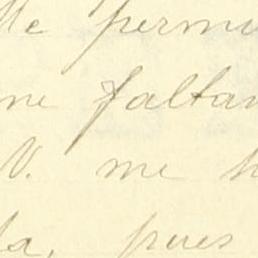 te permi
me faltar
V. me h
la, pues